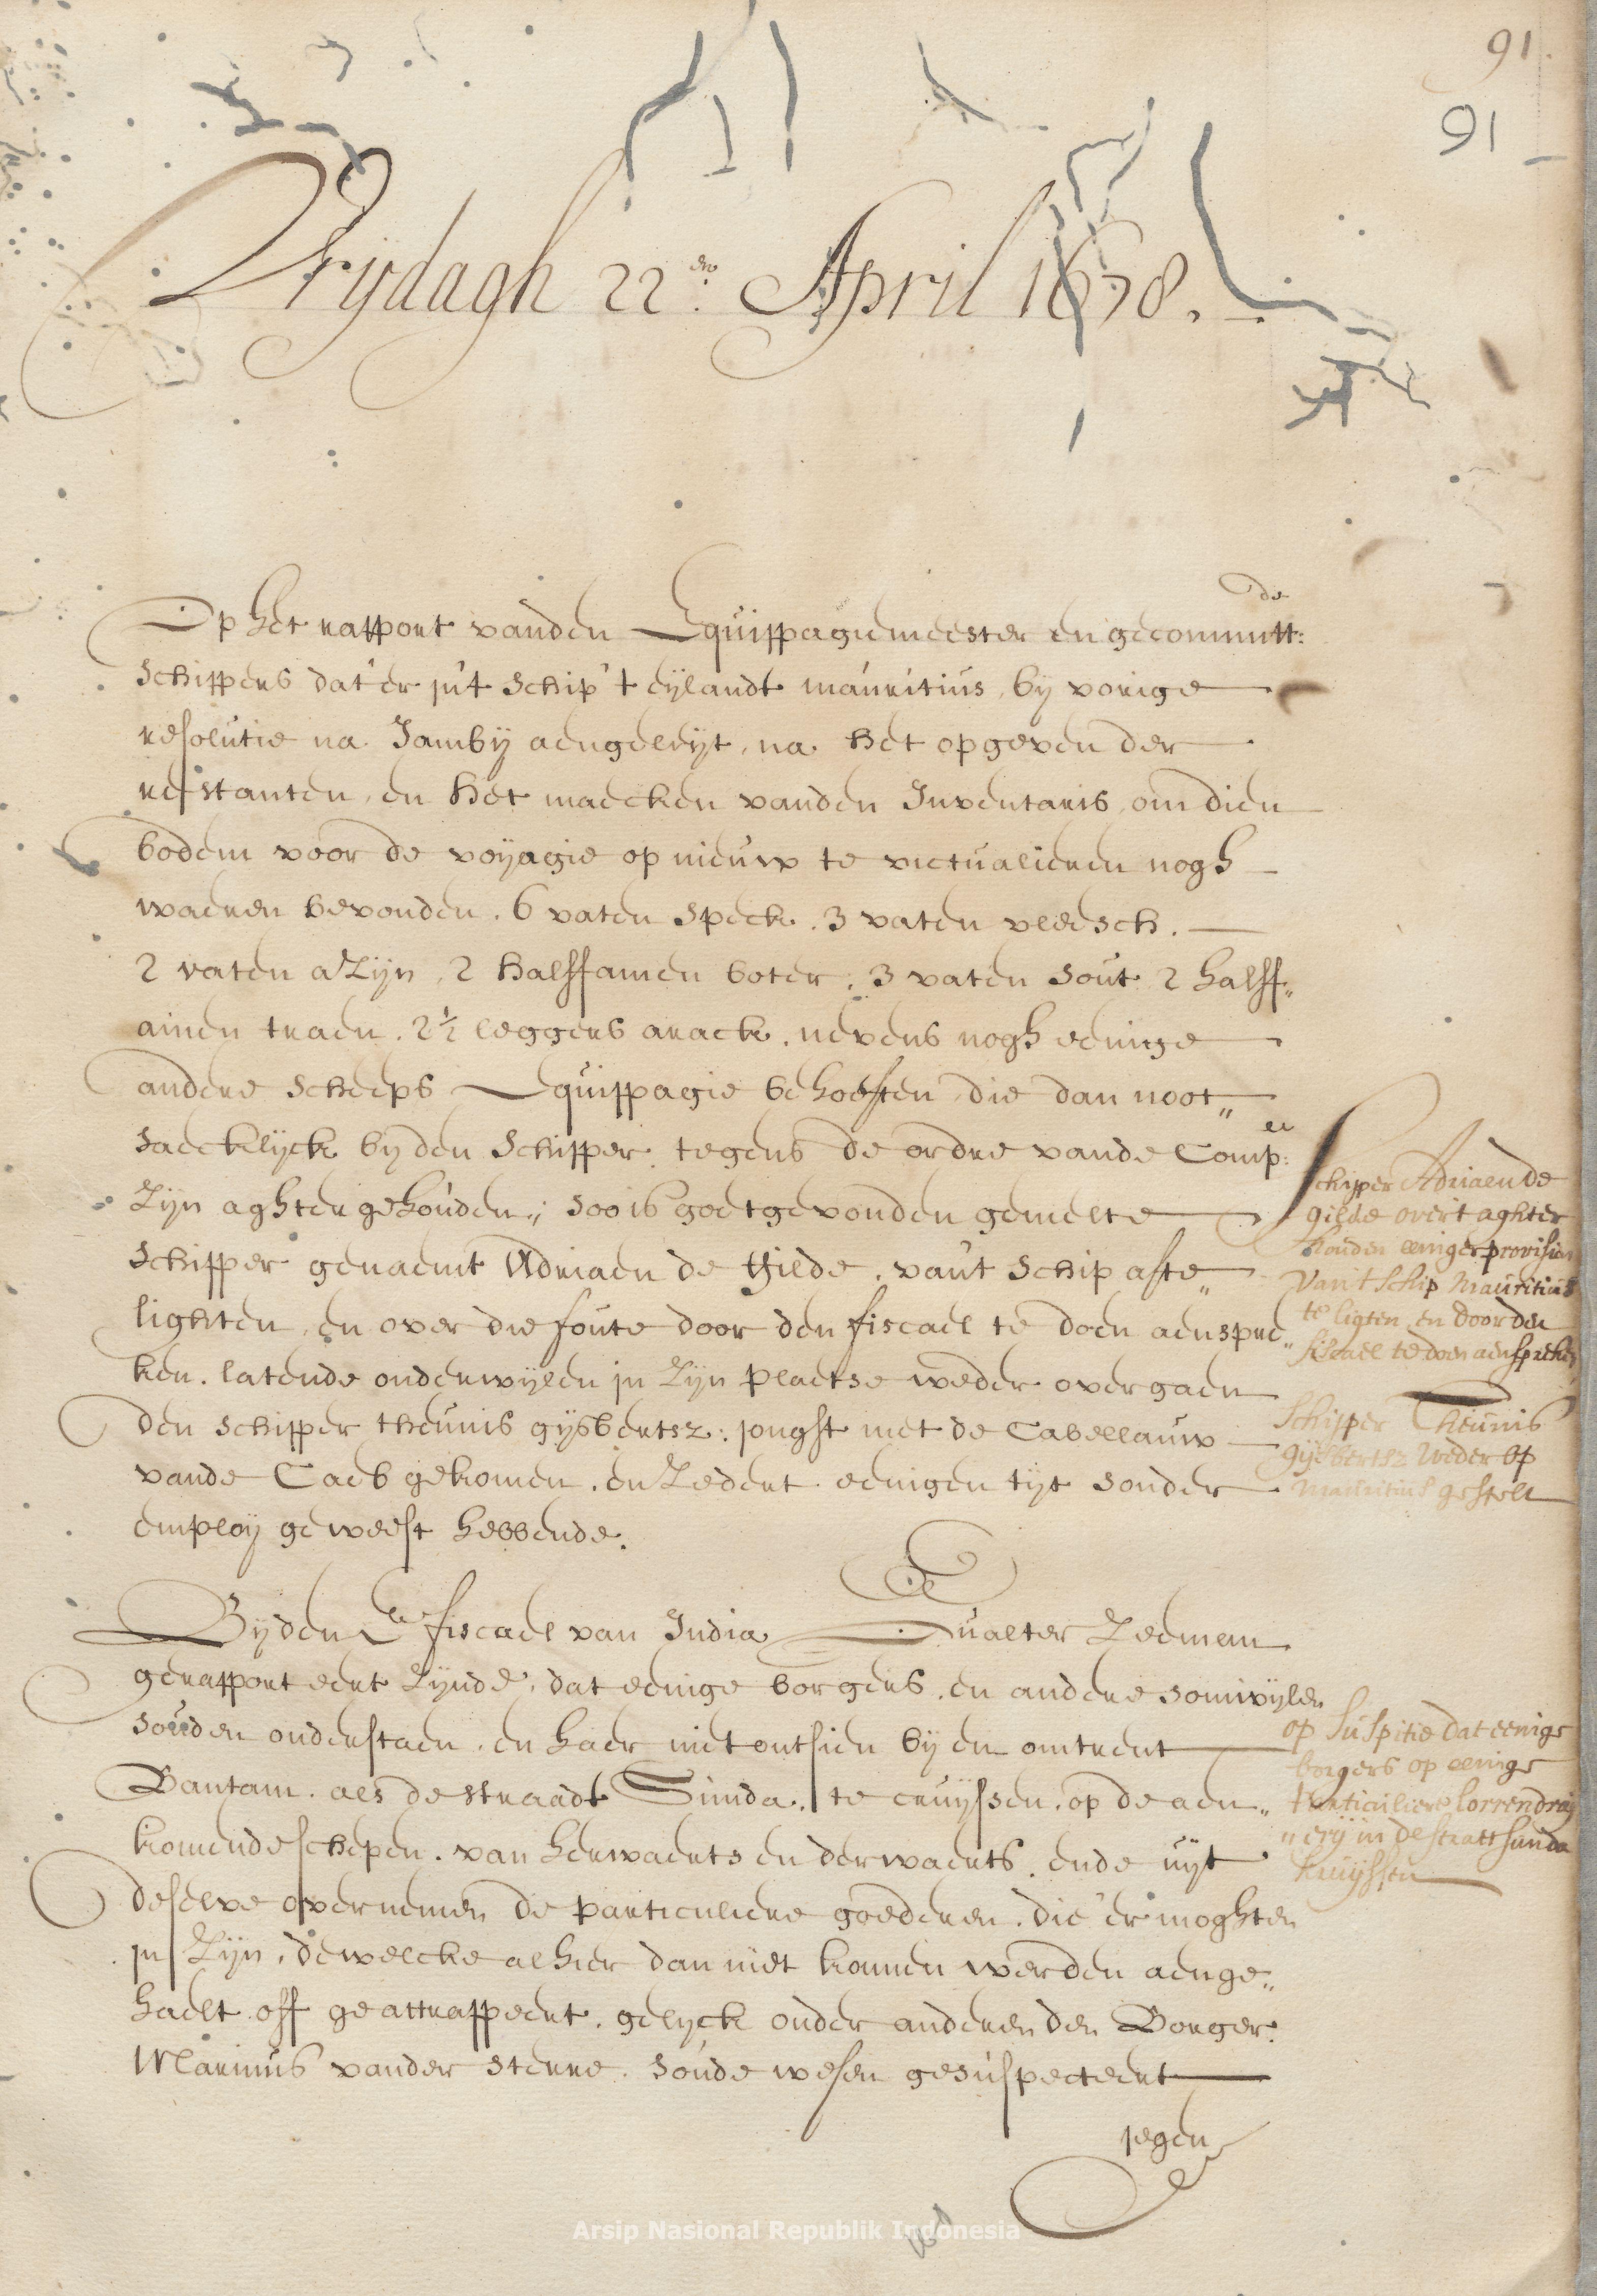 91.
91
Vrijdagh 22.en April 1678.
Op het rapport vanden Equippagiemeester en gecommitt:de
schippers dat'er in't schip 't eylandt mauritius, by vorige
resolutie na Jamby aengeleyt, na het opgeven der
restanten, en het maecken vanden Inventaris, om dien
bodem voor de voyagie op nieuw te victualieren nogh
waeren bevonden. 6 vaten speck. 3 vaten vleesch.
2 vaten azijn, 2 halffamen boter, 3 vaten sout 2 halff„
amen traen. 2½ leggers arack. nevens nogh eenige
andere scheeps Equippagie behoeften, die dan noot„
saecklijck by den schipper tegens de ordre vande Comp:e
zijn aghtergehouden; soo is goetgevonden gemelte
schipper genaemt Adriaen de Gilde, van't schip afte„
lighten, en over die foute door den fiscael te doen aenspree„
ken. latende onderwijlen in zijn plaetse weder overgaen
den schipper theunis gijsbertsz: jonghst met de Cabellauw
vande Caeb gekomen, en zedert eenigen tijt sonder
employ geweest hebbende.
Schipper Adriaen de
gilde over 't aghter
houden eeniger provisien
van't schip Mauritius
te ligten, en door den
fiscael te doen aenspreken
Schipper Theunis
gijsbertsz weder op
mauritius gestelt
By den E fiscael van India Dualter Zeeman
gerapporteert zijnde, dat eenige borgers, en andere somwijlen
souden onderstaen, en haer niet ontsien by en omtrent
Bantam, als de straadt Sunda, te cruijssen, op de aen„
komende schepen, van herwaerts en derwaerts, ende uijt
deselve overnemen de particuliere goederen, die'er moghten
in zijn, dewelcke alhier dan niet konnen werden aenge„
haelt off geattrappeert, gelyck onder anderen den Borger
Marinus vander sterre, soude wesen gesuspecteert
op suspitie dat eenige
borgers op eenige
particuliere lorrendray
„ery in de straat sunda
kruijssen
jegen
Arsip Nasional Republik Indonesia